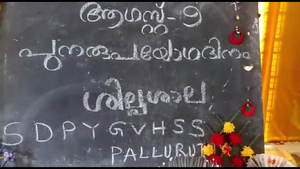 ആഗസ്റ്റ്-9
പുനരുപയോഗദിനം
ശില്പശാല
SDPYGVHSS
PALLURUT